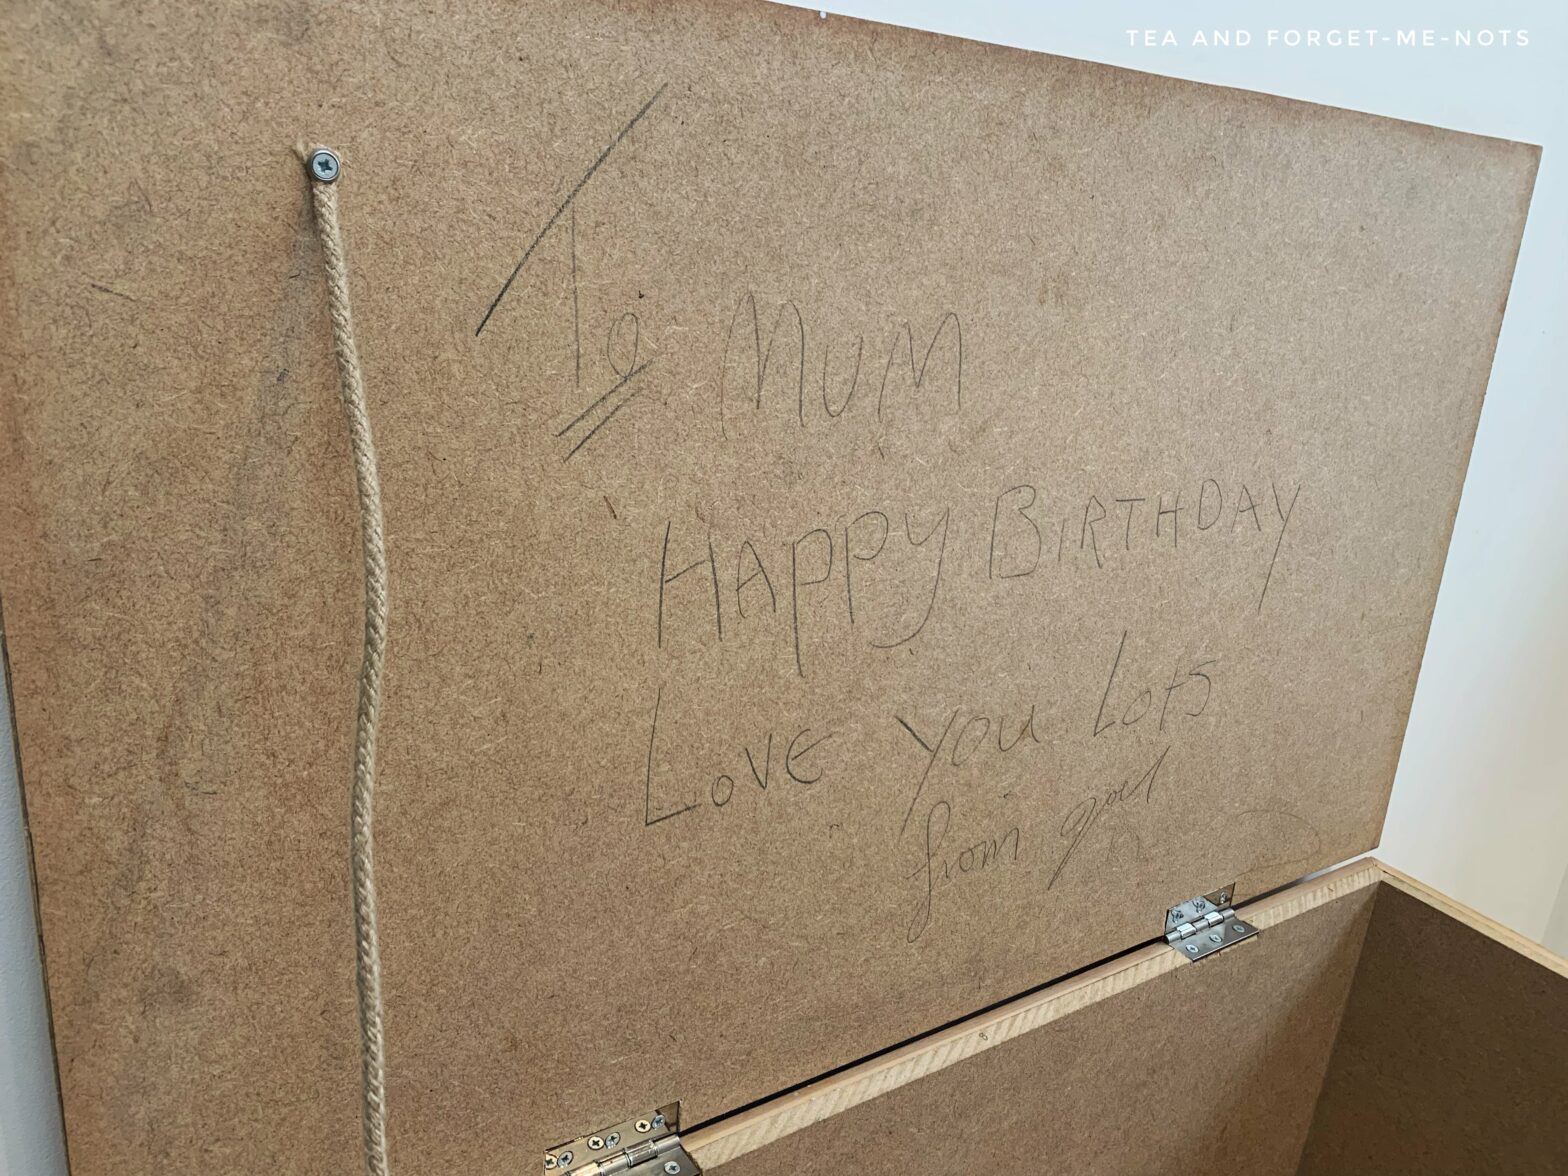 TEA AND FORGET-ME-NOTS
To MUM
HAPPY BIRTHDAY
LOVE You Lots
from